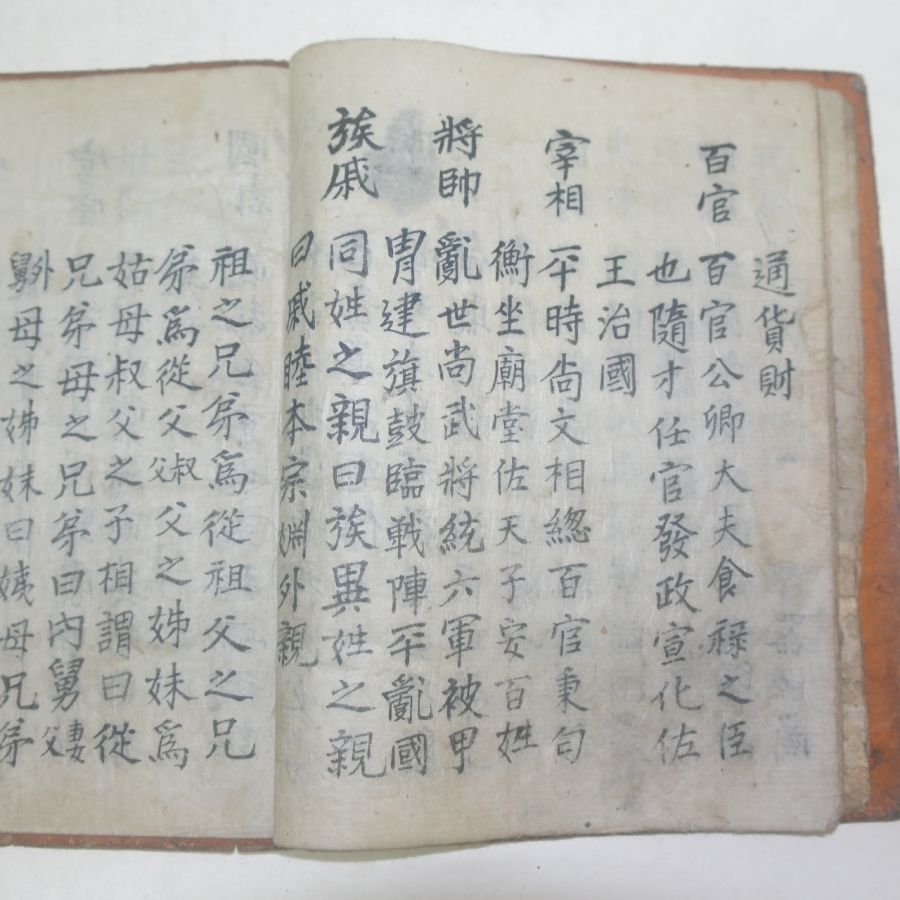 通貨財
百官 百官公卿大夫食祿之臣
也隨才任官發政宣化佐
王治國
宰相 平時尙文相緫百官秉勻
衡坐廟堂佐天子安百姓
將帥 亂世尙武將統六軍被甲
冑建旗鼓臨戰陣平亂國
族戚 同姓之親曰族異姓之親
曰戚睦本宗婣外親
祖之兄弟爲從祖父之兄
弟爲從父叔父父之姊妹爲
姑母叔父之子相謂曰從
兄弟母之兄弟曰內舅妻父
外舅母之姊妹曰姨母兄弟